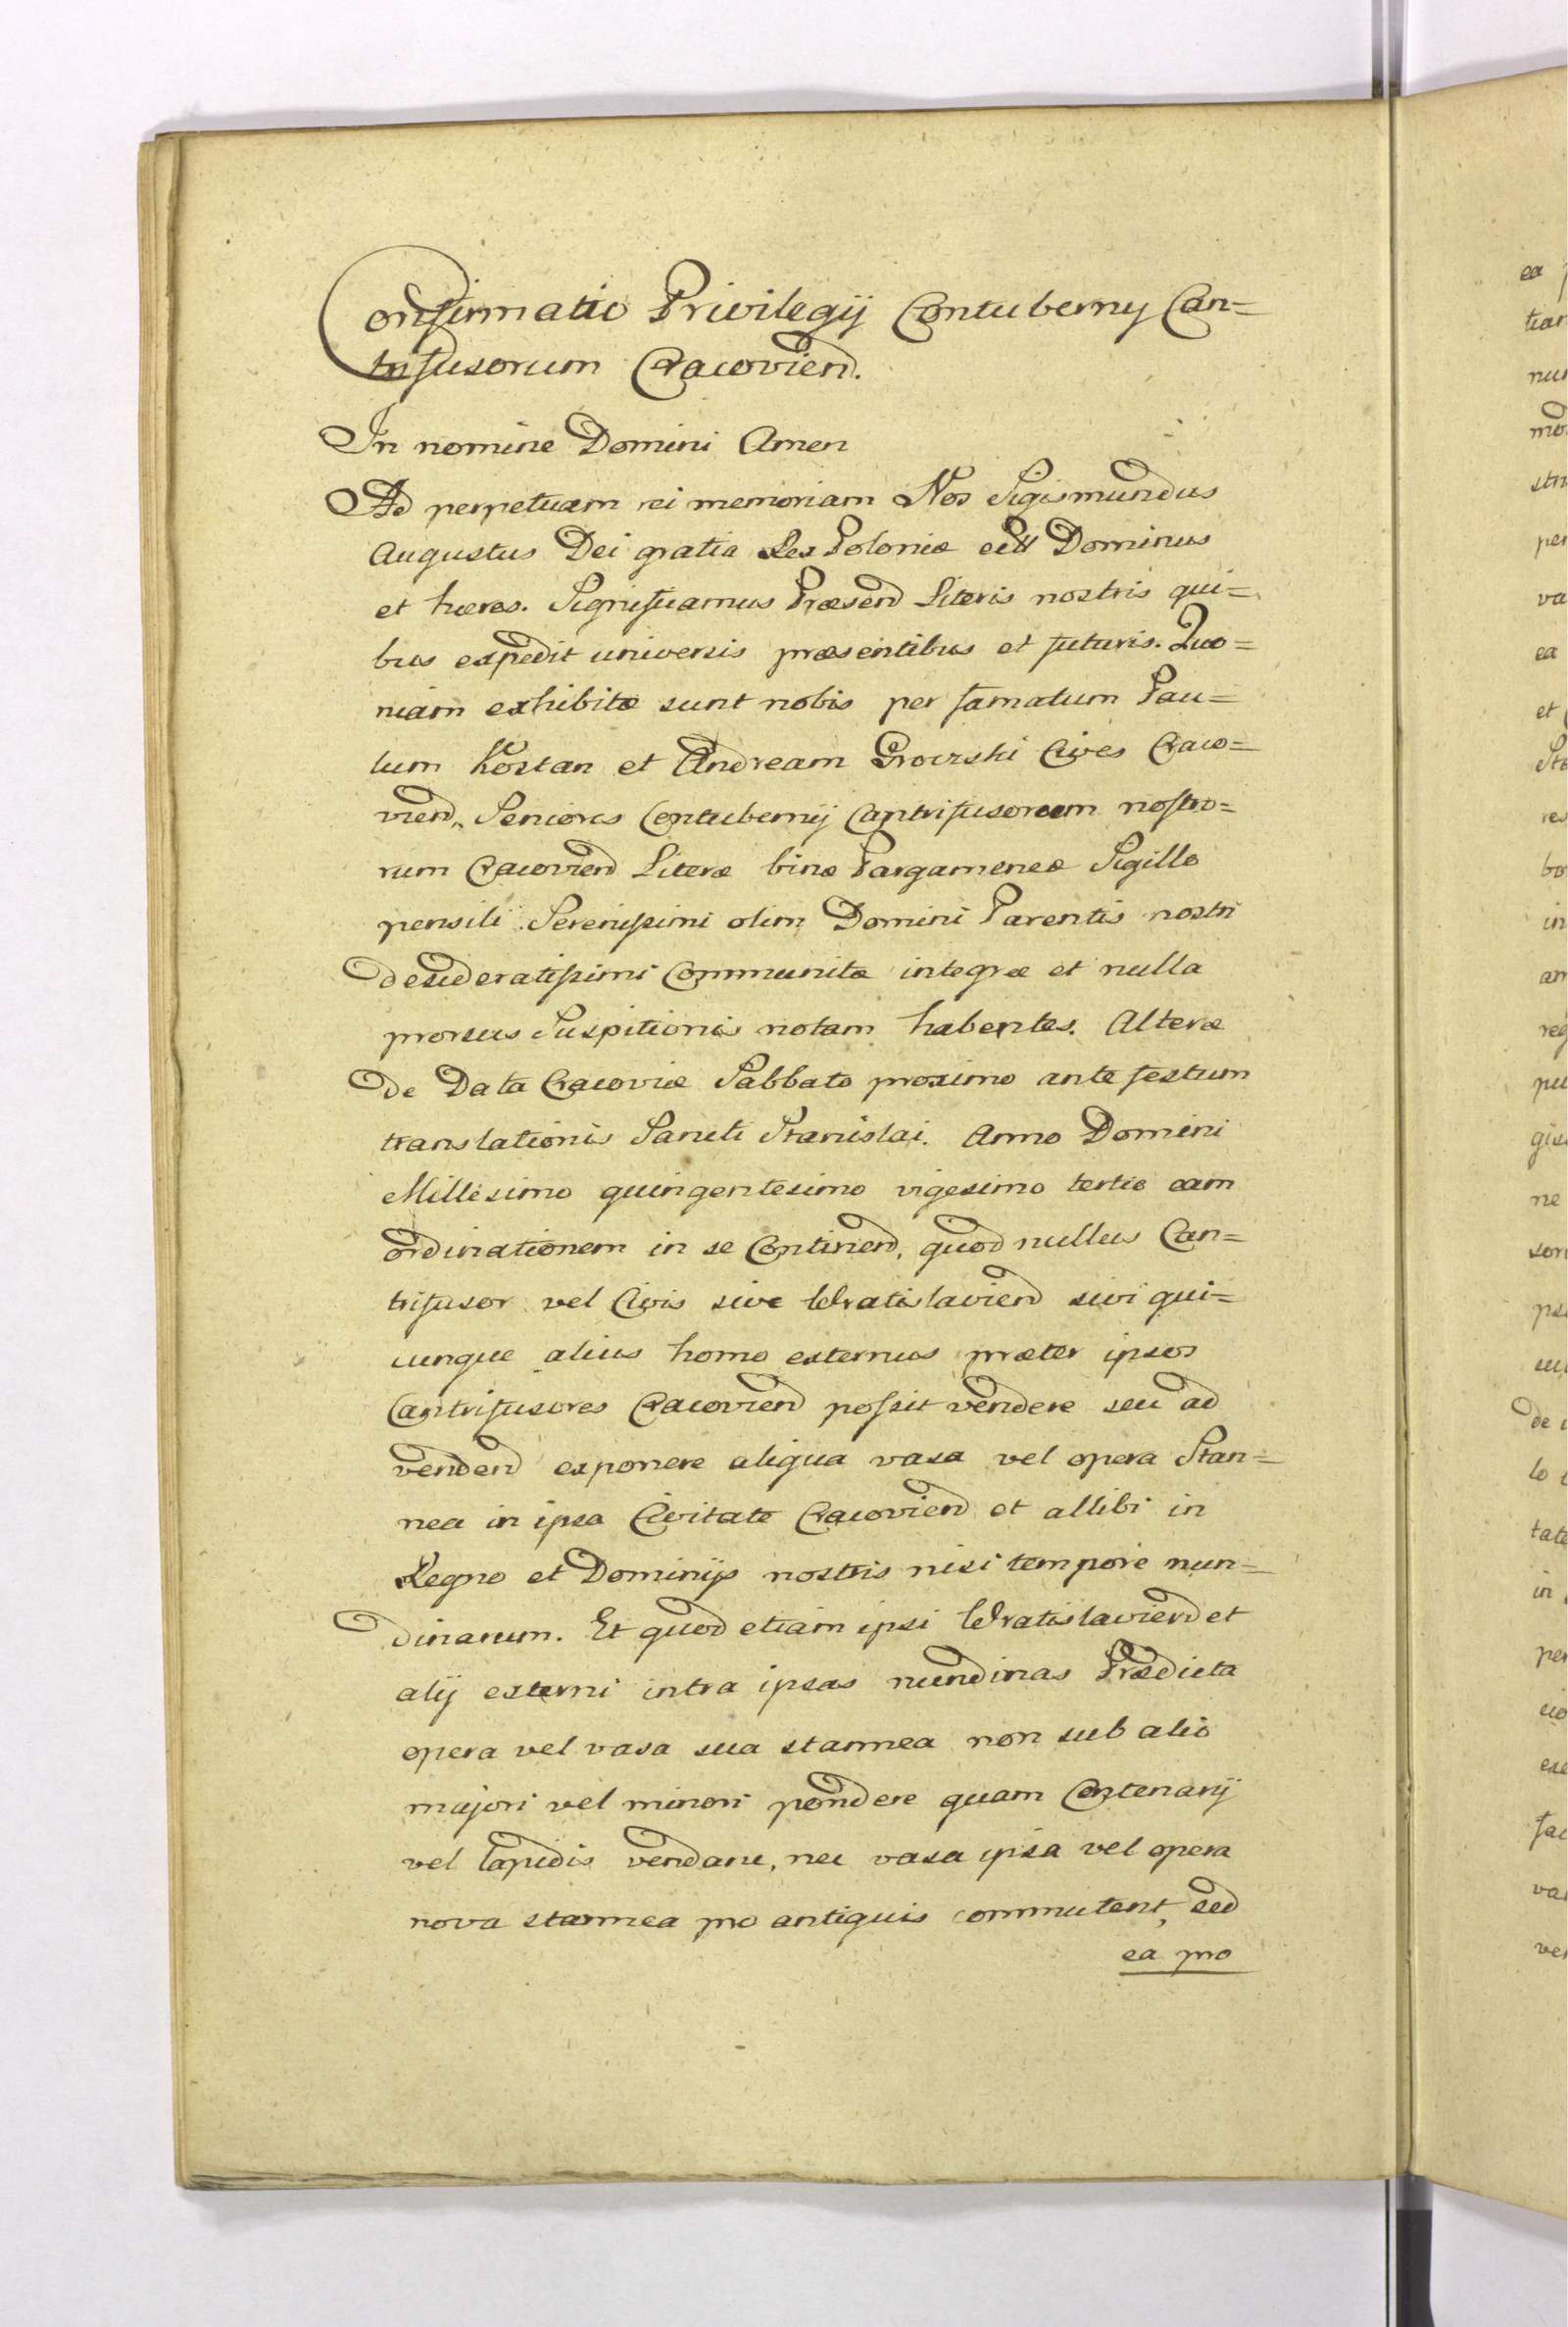 Confirmatio Privilegij Contubernij Can=
trifusorum Cracoviend.
In nomine Domini Amen
Ad perpetuam rei memoriam Nos Sigismundus
Augustus Dei gratia Rex Poloniæ Dominus
et hæres. Significamus Præsend Literis nostris qui=
bus expedit universis præsentibus et futuris. Quo=
niam exhibitæ sunt nobis per famatum Pau=
lum Kostan et Andream Cives Craco=
viend. Seniores Contubernij Cantrifusorum nostro=
rum Cracoviend Literæ binæ Pargameneæ Sigillo
pensili Serenissimi olim Domini Parentis nostri
desideratissimi Communitæ integræ et nulla
prorsus Suspitionis notam habentes. Alteræ
de Data Cracoviæ Sabbato proximo ante festum
translationis Sancti Stanislai. Anno Domini
Millesimo quingentesimo vigesimo tertio eam
ordinationem in se Continend, quod nullus Can=
trifusor vel Civis sive Wratislaviend sivi qui=
cunque alius homo externus præter ipsos
Cantrifusores Cracoviend possit vendere seu ad
vendend exponere aliqua vasa vel opera Stan=
nea in ipsa Civitate Cracoviend et allibi in
Regno et Dominijs nostris nisi tempore nun=
dinarum. Et quod etiam ipsi Wratislaviend et
alij externi intra ipsas nundinas Prædicta
opera vel vasa sua stannea non sub alio
majori vel minori pondere quam Centenarij
vel lapidis vendant, nec vasa ipsa vel opera
nova stannea pro antiquis commutent, sed
ea pro